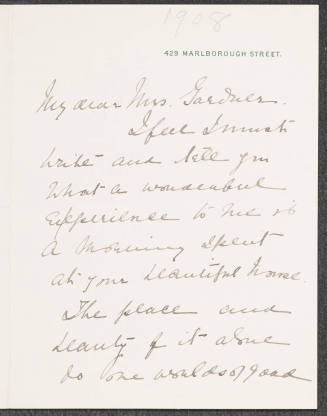 1908
429 MARLBOROUGH STREET.
My dear Mrs. Gardner.
I feel I must
write and tell you
what a wonderful
experience to me is
a morning spent
at your beautiful house.
The peace and
beauty of it alone
do one worlds of good